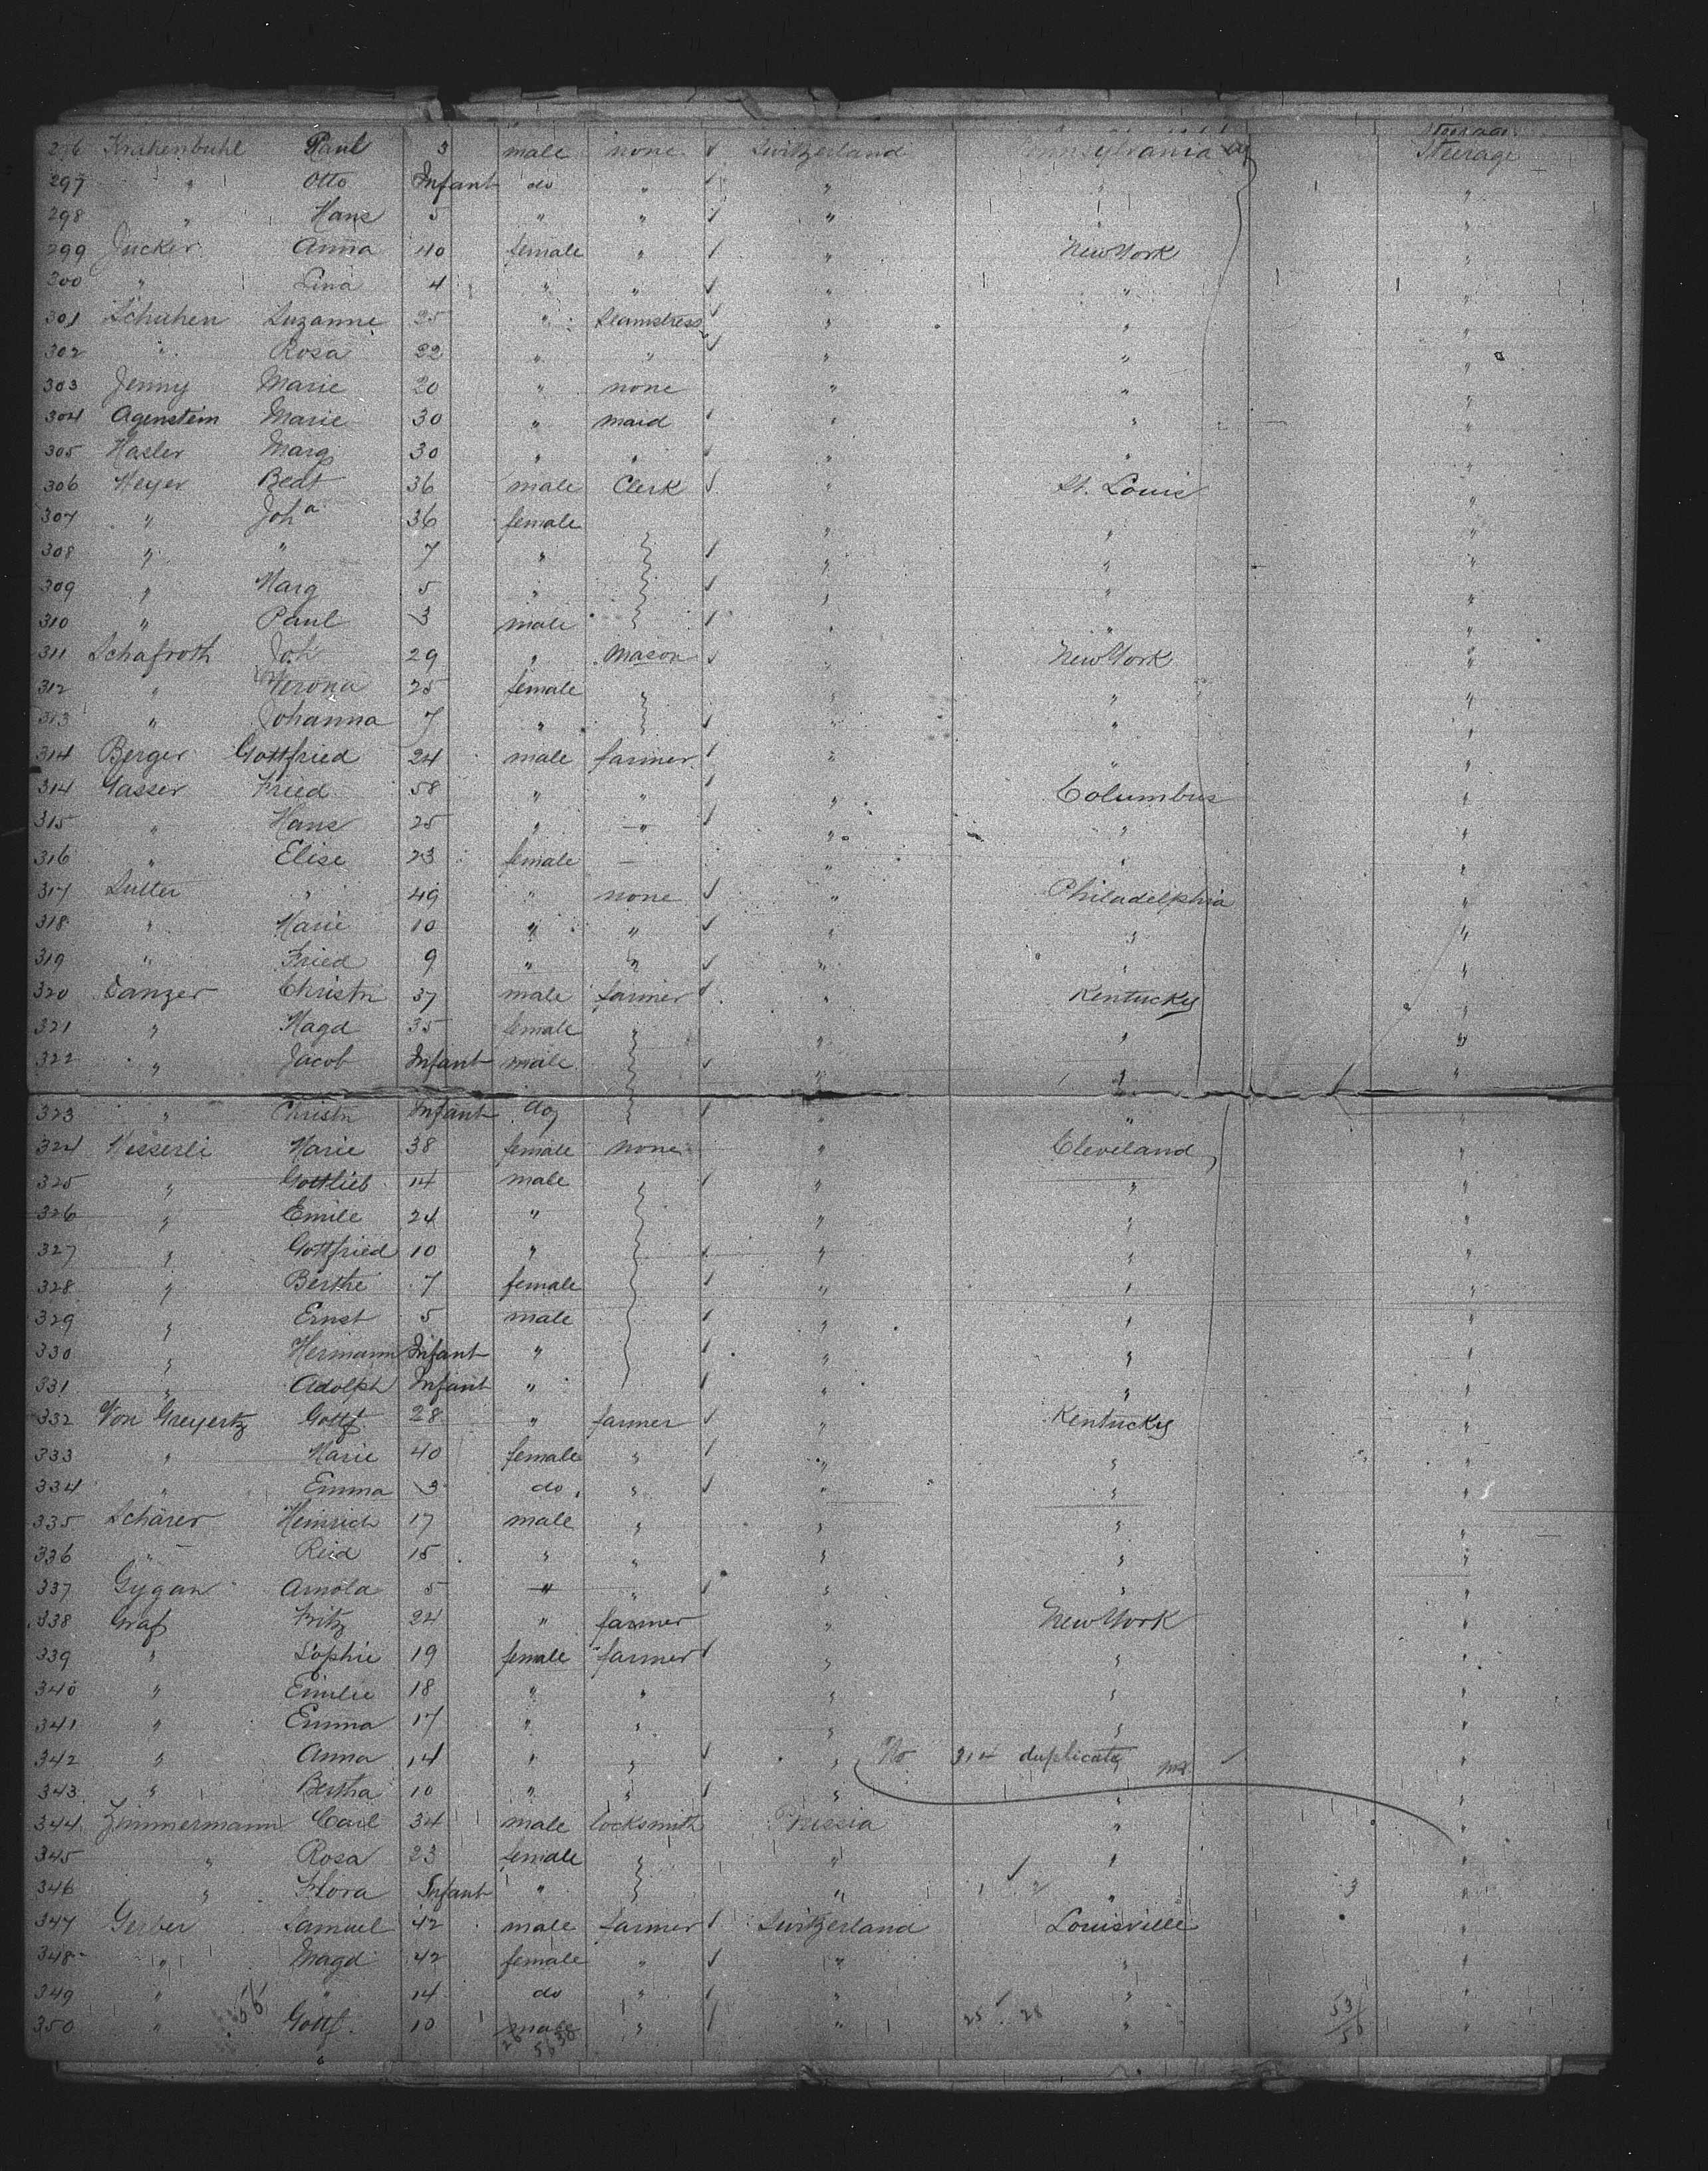 Steerage
296 Krähenbuhl Paul 3 male none ✓ Switzerland Pennsylvania Steerage
297 " Otto Infant do " ✓ " " "
298 " Hans 5 " " ✓ " "
299 Jucker Anna 40 female " ✓ " New York "
300 " Lina 4 " " ✓ " " "
301 Schuhen Suzanne 25 " Seamstress ✓ " " "
302 " Rosa 22 " " ✓ " " "
303 Jenny Marie 20 " none " " "
304 Agenstein Marie 30 " maid ✓ " " "
305 Hasler Marg 30 " " ✓ " " "
306 Meyer Beat 36 male Clerk ✓ " St. Louis "
307 " Joha 36 female " " "
308 " " 7 " ✓ " " "
309 " Marg 5 " ✓ " " "
310 " Paul 3 male ✓ " " "
311 Schafroth Joh 29 " Mason ✓ " New York "
312 " Verona 25 female " " "
313 " Johanna 7 " ✓ " " "
314 Berger Gottfried 24 male farmer ✓ " " "
314 Gasser Fried 58 " " ✓ " Columbus "
315 " Hans 25 " " ✓ " " "
316 " Elise 23 female — " " "
317 Sutter " 49 " none ✓ " Philadelphia "
318 " Marie 10 " " ✓ " " "
319 " Fried 9 " " ✓ " " "
320 Danzer Christn 37 male farmer ✓ " Kentucky "
321 " Magd 35 female " " "
322 " Jacob Infant male ✓ " " "
323 " Christn Infant do ✓ " " "
324 Misserli Marie 38 female none " Cleveland "
325 " Gottlieb 14 male ✓ " " "
326 " Emile 24 " " " "
327 " Gottfried 10 " ✓ " " "
328 " Berthe 7 female ✓ " " "
329 " Ernst 5 male ✓ " " "
330 " Hermann Infant " ✓ " " "
331 " Adolph Infant " ✓ " " "
332 Von Greyertz Gottf 28 " farmer ✓ " Kentucky "
333 " Marie 40 female " ✓ " " "
334 " Emma 3 do " ✓ " " "
335 Schärer Heinrich 17 male " " " "
336 " Reid 15 " " " " "
337 Gygan Arnold 5 " " ✓ " " "
338 Graf Fritz 24 " farmer " New York "
339 " Sophie 19 female farmer ✓ " " "
340 " Emilie 18 " " " " "
341 " Emma 17 " " " " "
342 " Anna 14 " " ✓ " No 314 duplicate "
343 " Bertha 10 " " ✓ " " "
344 Zimmermann Carl 34 male locksmith Prussia " "
345 " Rosa 23 female " " "
346 " Flora Infant " " " 3 "
347 Gerber Samuel 42 male farmer ✓ Switzerland Louisville "
348 " Magd 42 female " ✓ " " "
349 " " 14 do " ✓ " " "
350 " Gottf. 10 male " ✓ " " "
56 26 56 30 25 28 53/56